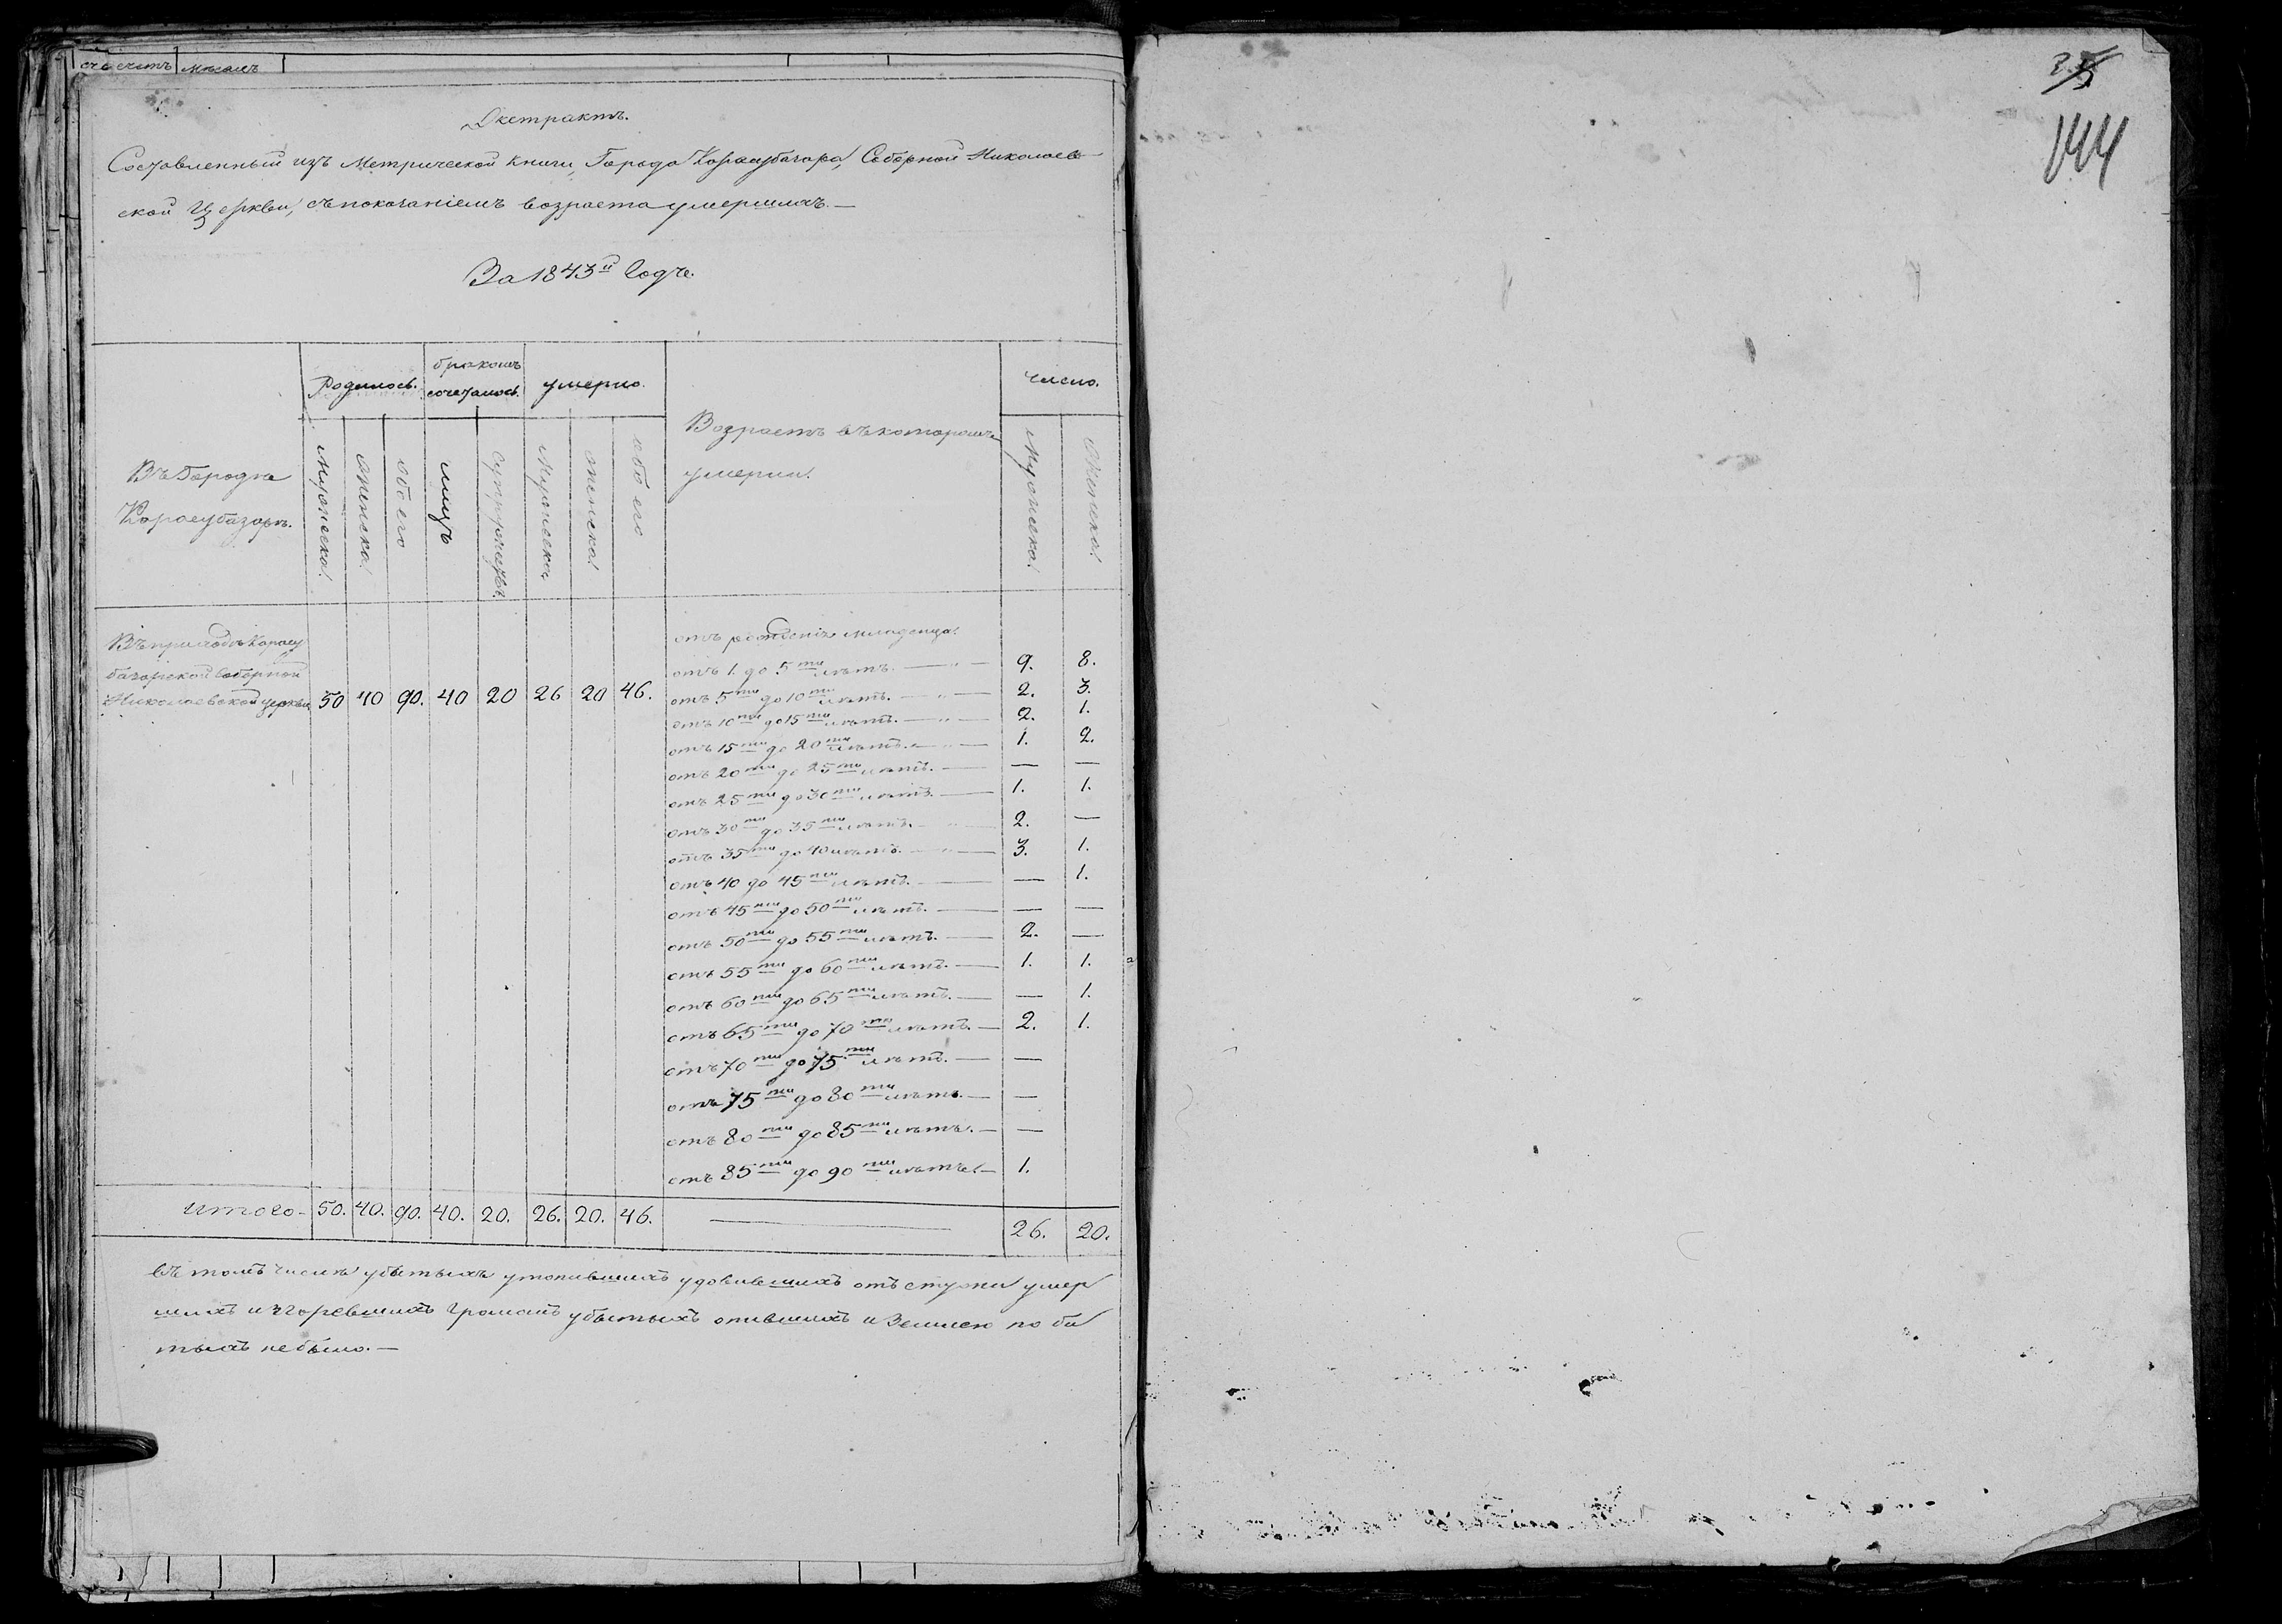 Экстрактъ.
Составленный изъ Метрической Книги, Города Карасубазара, Соборной Николаев-
ской Церкви, съ показаніемъ возраста умершихъ. —
За 1843й Годъ.
Въ Городѣ Карасубазарѣ.
Родилось.
бракомъ сочеталось.
умерло.
Возрастъ въ которомъ умерли.
Число.
Мужеска. Женска. обоего лицъ супружествъ Мужеска Женска обоего Мужеска. Женска.
Въ приходѣ Карасу
базарской Соборной
Николаевской церкви 50 40 90. 40 20 26 20 46.
отъ рожденія младенца.
отъ 1. до 5ти лѣтъ. — 9. 8.
отъ 5ти до 10ти лѣтъ. — 2. 3.
отъ 10ти до 15ти лѣтъ. — 2. 1.
отъ 15ти до 20ти лѣтъ. — 1. 2.
отъ 20ти до 25ти лѣтъ. — — —
отъ 25ти до 30ти лѣтъ. — 1. 1.
отъ 30ти до 35ти лѣтъ. — 2. —
отъ 35ти до 40 лѣтъ. — 3. 1.
отъ 40 до 45ти лѣтъ. — — 1.
отъ 45ти до 50ти лѣтъ. — — —
отъ 50ти до 55ти лѣтъ. — 2. —
отъ 55ти до 60ти лѣтъ. — 1. 1.
отъ 60ти до 65ти лѣтъ. — — 1.
отъ 65ти до 70ти лѣтъ. — 2. 1.
отъ 70ти до 75ти лѣтъ. — —
отъ 75ти до 80ти лѣтъ. — —
отъ 80ти до 85ти лѣтъ. — —
отъ 85ти до 90ти лѣтъ. — 1.
Итого - 50. 40. 90. 40. 20. 26. 20. 46. — 26. 20.
въ томъ числѣ убитыхъ утопившихъ удавившихъ отъ стужи умер
шихъ и згоревшихъ громомъ убитыхъ опившихъ и Землею по би
тыхъ небыло. —
144